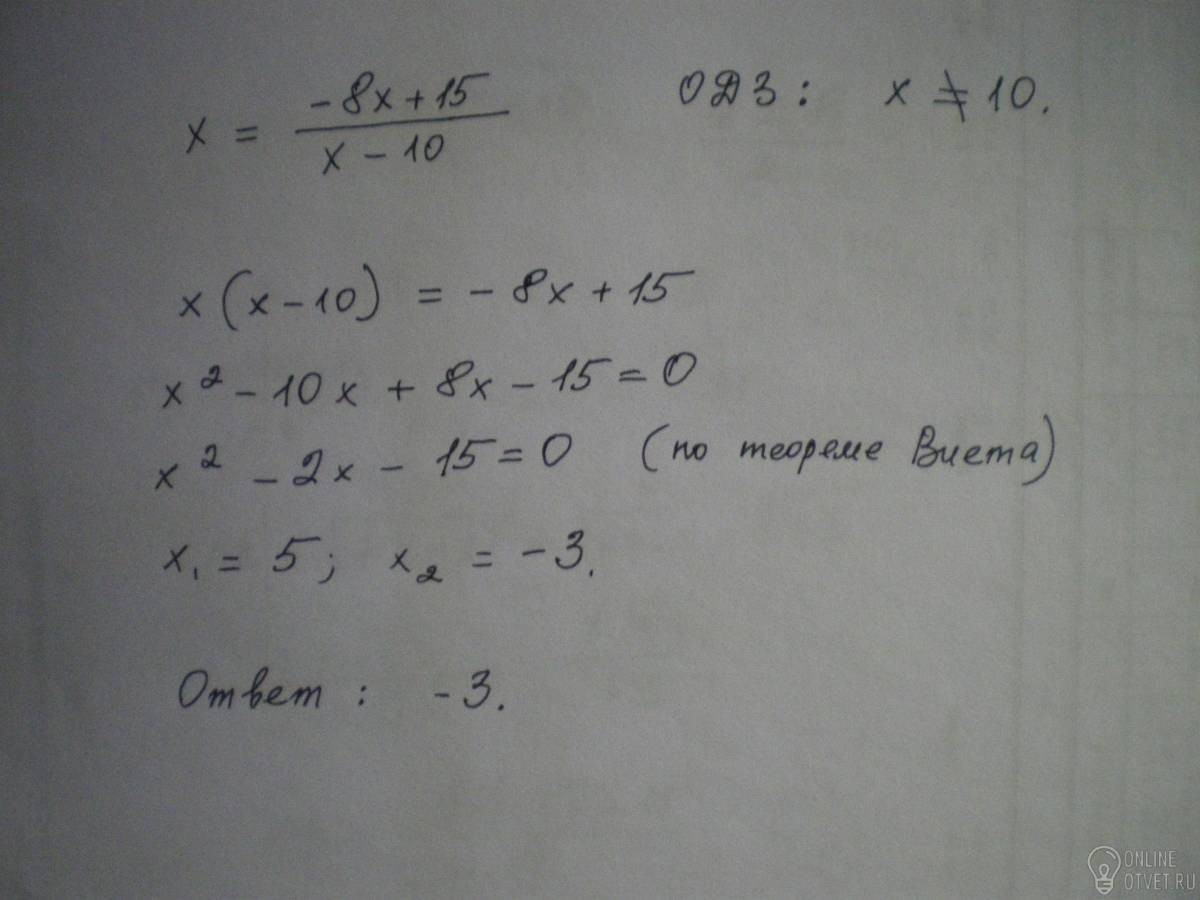 x = (-8x+15)/(x-10) ОДЗ: x ≠ 10.
x(x-10) = -8x+15
x² - 10x + 8x - 15 = 0
x² - 2x - 15 = 0 (по теореме Виета)
x₁ = 5; x₂ = -3.
Ответ: -3.
ONLINE
OTVET.RU